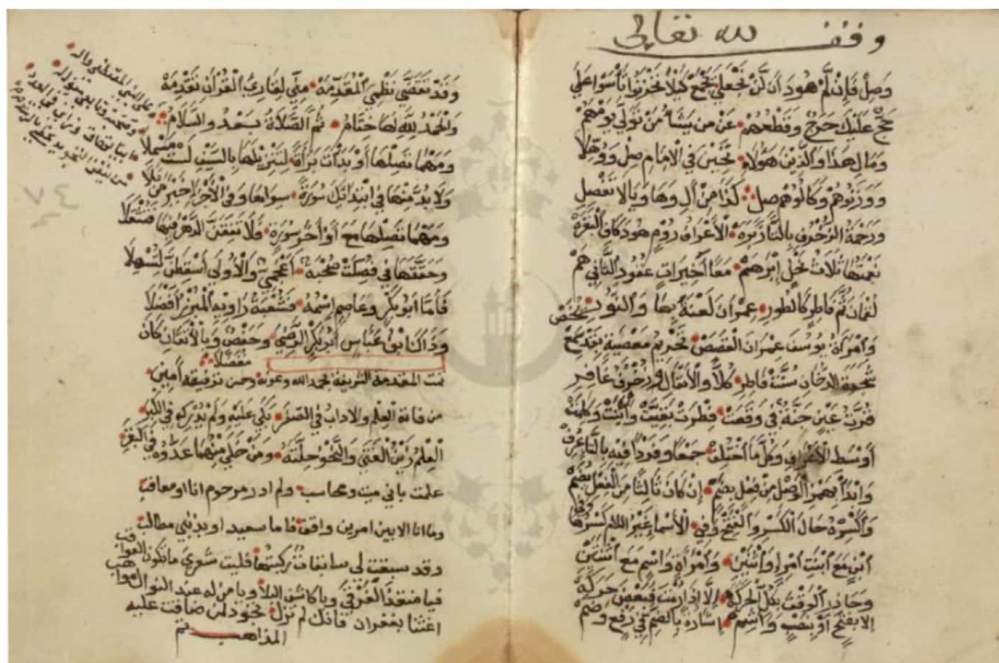 وقف لله تعالى
وصل فإن لم هود أن لن نجعلا نجمع كيلا تحزنوا تأسوا على
حج عليك حرج وقطعهم عن من يشاء من تولى يوم هم
ومال هذا والذين هؤلاء تحين في الامام صل ووهلا
ووزنوهم وكالوهم صل كذا من ال وها ويا لا تفصل
ورحمة الزخرف بالتا زبره الاعراف روم هود كاف البقره
نعمتها ثلاث نحل ابرهم معا اخيرات عقود الثاني هم
لقمان ثم فاطر كالطور عمران لعنة بها والنور
يخص
وامرأة يوسف عمران القصص تحريم معصية بقد سمع
شجرة الدخان سنة فاطر كلا والانفال وحرف غافر
قرت عين جنة في وقعت فطرت بقيت وابنت وكلمت
اوسط الاعراف وكل ما اختلف جمعا وفردا فيه بالتاء عرف
وابدأ بهمز الوصل من فعل بضم إن كان ثالثا من الفعل يضم
واكسره حال الكسر والفتح وفي الاسما غير اللام كسرها وفي
ابن مع ابنت امرئ واثنين وامرأة واسم مع اثنتين
وحاذر الوقف بكل الحركه الا اذا رمت فبعض حركه
الا بفتح او بنصب واشم اشارة بالضم في رفع وضم
وقد تقضى نظمي المقدمة مني لقارئ القرآن تقدمة
والحمد لله لها ختام ثم الصلاة بعد والسلام
على النبي المصطفى واله
وصحبه وتابعي منواله
ابياتها قاف وزاي في العدد
من يتقن التجويد يظفر بالرشد
٧٤
ومهما تصلها أو بدأت براءة لتنزيلها بالسيف لست مبسملا
ولا بد منها في ابتدائك سورة سواها وفي الأجزاء خير من تلا
ومهما تصلها مع أواخر سورة فلا تقفن الدهر فيها فتثقلا
وحققها في فصلت صحبة أعجمي والاولى أسقطن لتسهلا
فأما أبو بكر وعاصم اسمه فشعبة راويه المبرز أفضلا
وذاك ابن عياش أبو بكر الرضى وحفص وبالاتقان كان
مفضلا
تمت المقدمة الشريفة بحمد الله وعونه وحسن توفيقه آمين
من فاته العلم والاداب في الصغر بكى عليه ولم يدركه في الكبر
العلم زين الفتى والنحو حليته ومن خلى منهما عدوه في البقر
علمت باني ميت ومحاسب ولم ادر مرحوم انا او معاقب
وما انا الا بين امرين واقف فاما سعيد او بذنبي مطالب
وقد سبقت لي سابقات كتبتها فليت شعري ما تكون العواقب
فيا منقذ الغرقى ويا كاشف البلا ويا من له عند النوال مواهب
اغثنا بغفران فانك لم تزل تجود لمن ضاقت عليه
المذاهب تم